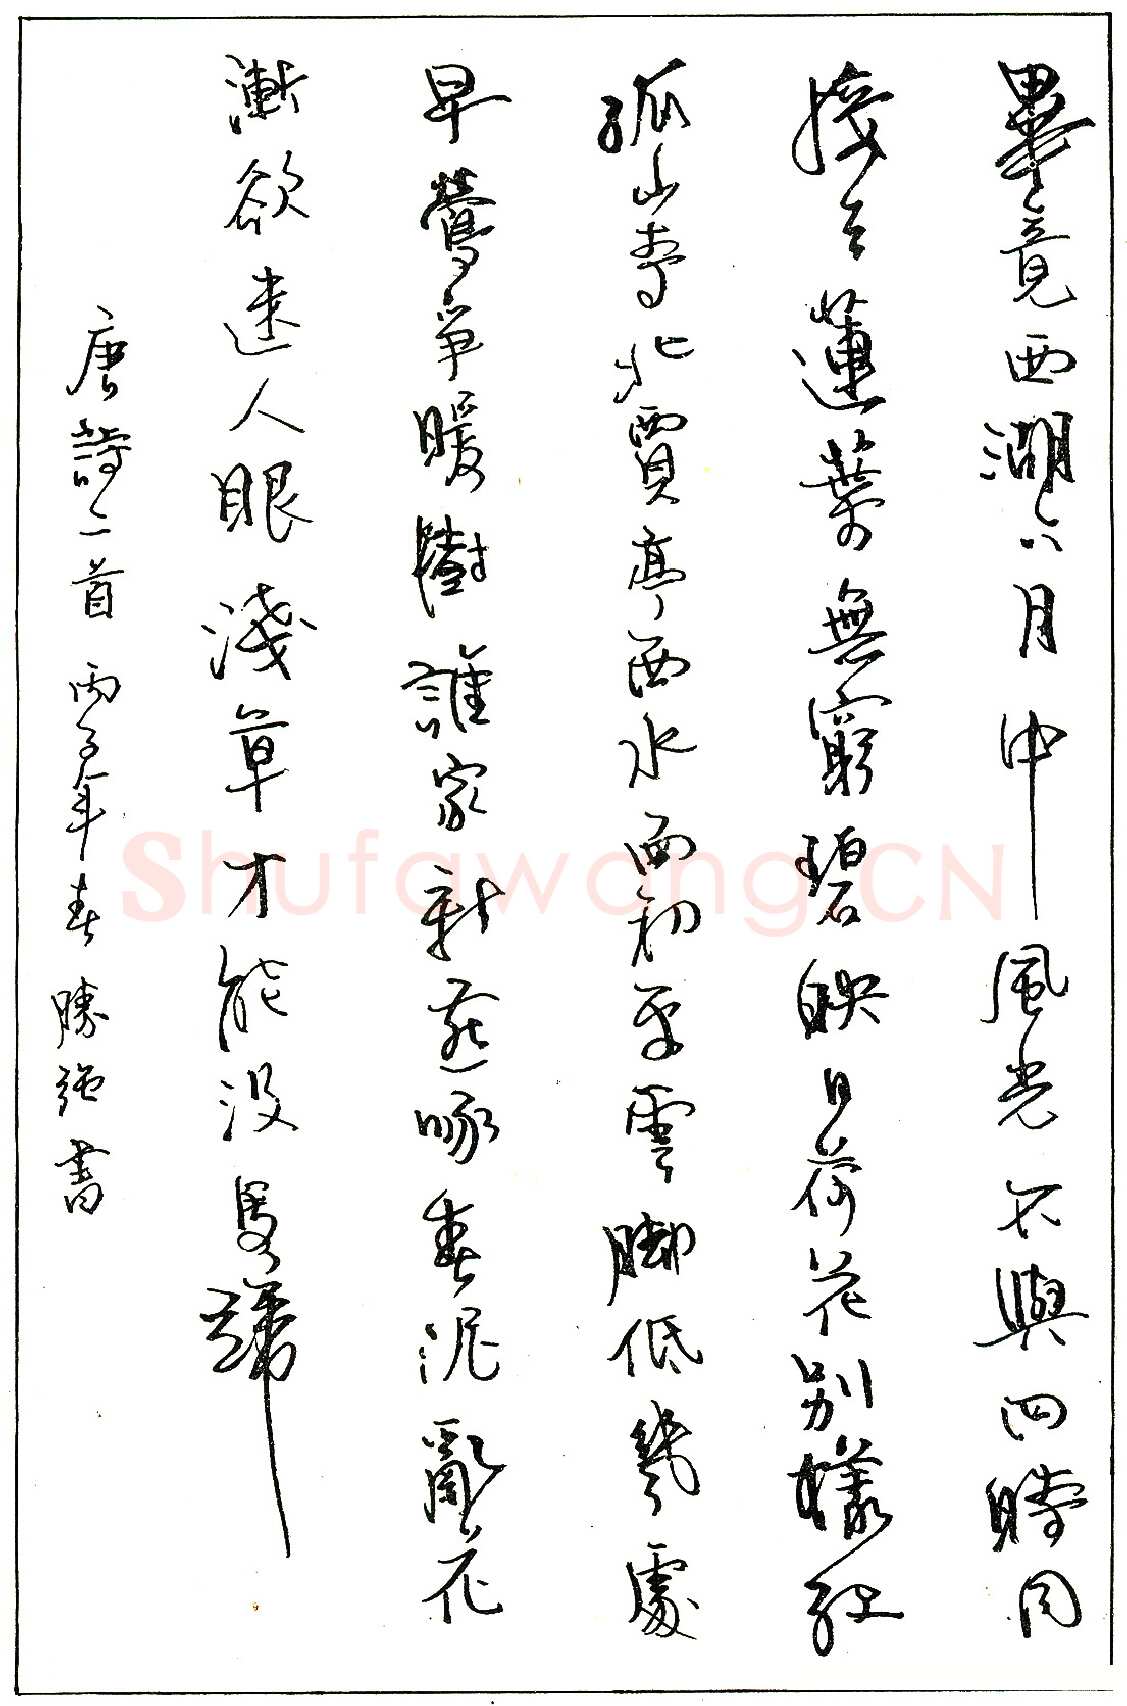 畢竟西湖六月中風光不與四時同
接天蓮葉無窮碧映日荷花別樣紅
孤山寺北賈亭西水面初平雲脚低幾處
早鶯爭暖樹誰家新燕啄春泥亂花
漸欲迷人眼淺草才能没馬蹄
唐詩二首 丙子年春 勝強書
Shufawang.CN